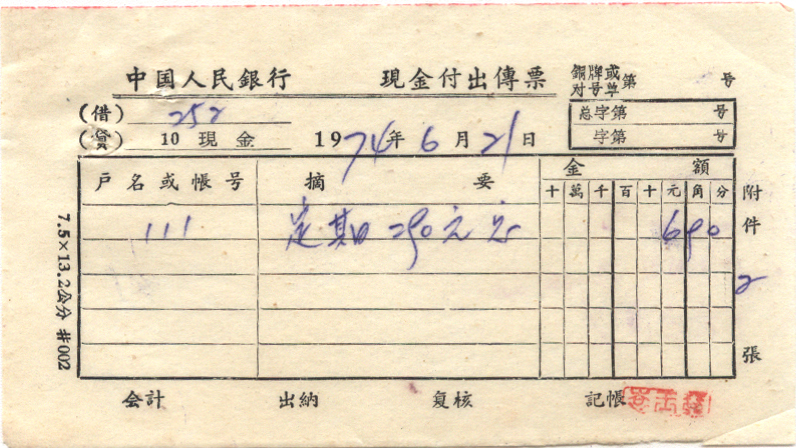 中国人民銀行 現金付出傳票
銅牌或
对号单
第 号
(借) 252
(貸) 10 現金
1974年6月21日
总字第 号
字第 号
戶名或帳号 摘要 金額
十萬千百十元角分
111 定期 290元 690
附件 2 張
7.5×13.2公分 #002
会計 出納 复核 記帳